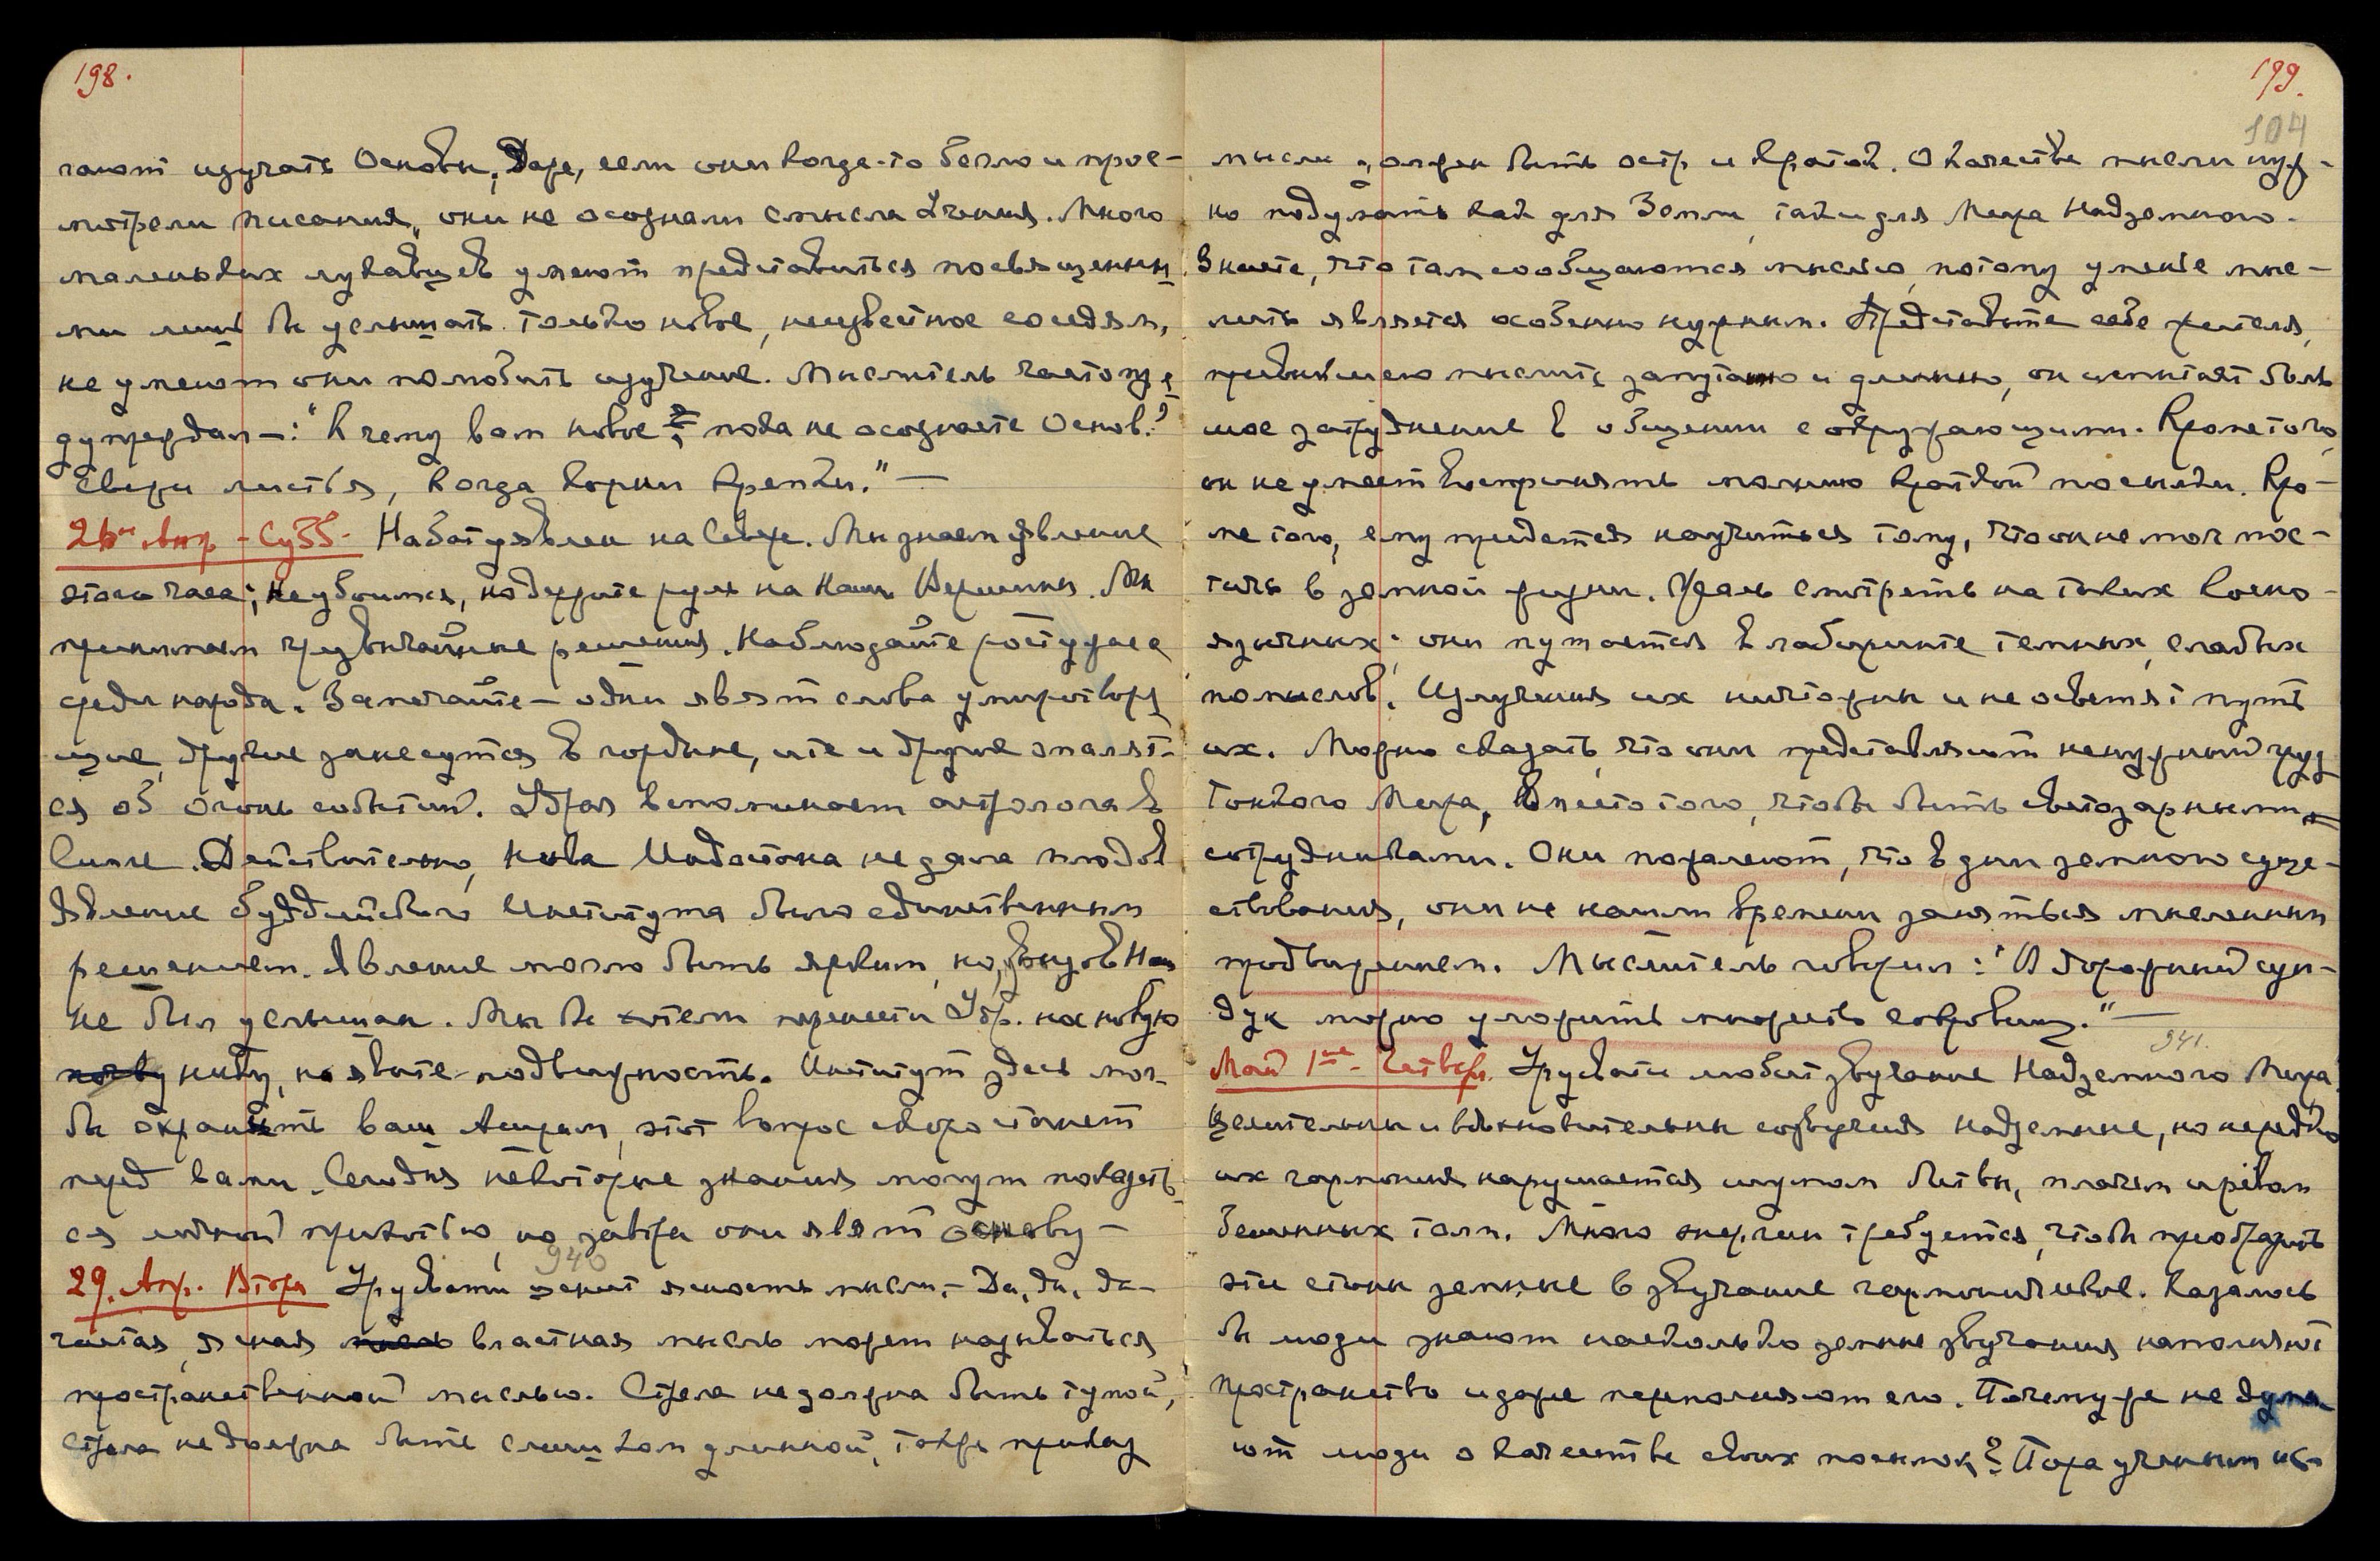 198.
чают изучать Основы. Даже, если они когда-то бегло и прос-
мотрели писания, они не осознали смысла Учения. Много
маленьких лукавцев умеют представиться посвященны
ми лишь бы услышать только новое, неизвестное соседям,
не умеют они полюбить изучение. Мыслитель часто пре
дупреждал—: "К чему вам новое, пока не осознаете Основ?
Свежи листья, когда корни крепки." —
26го Апр - Субб - Набат уявлен на Севере. Мы знаем явление
этого часа; не убоимся, но держите руль на Наши Вершины. Мы
принимаем чрезвычайные решения. Наблюдайте рост ужаса
среди народа. Замечайте — одни явят слова умиротворя
ющие, другие занесутся в гордыне, и те и другие опалят-
ся об огонь событий. Удрая вспоминает астролога в
Симле. Действительно, нива Индостана не дала плодов
Явление буддийского Института было единственным
решением. Явление могло быть ярким, но, зов Наш
не был услышан. Мы бы хотели перенести Удр. на новую
почву ниву, но явите подвижность. Институт здесь мог
бы охранить ваш Ашрам, этот вопрос скоро станет
перед вами. Сегодня некоторые знания могут показать
ся личной прихотью, но завтра они явят основу —
940
29. Апр. Вторн Урусвати ценит ясность мысли. — Да, да, да —
чистая, ясная мысль властная мысль может называться
пространственной мыслью. Стрела не должна быть тупой,
стрела не должна быть слишком длинной, также приказ
199.
104
мысли должен быть остр и краток. О качестве мысли нуж-
но подумать как для Земли, так и для Мира Надземного.
Знаете, что там сообщаются мыслью, потому уменье мыс-
лить является особенно нужным. Представьте себе жителя,
привыкшего мыслить запутанно и длинно, он испытает боль
шое затруднение в общении с окружающими. Кроме того,
он не умеет воспринять молнию краткой посылки. Кро-
ме того, ему придется научиться тому, что он не мог пос-
тичь в земной жизни. Жаль смотреть на таких косно-
язычных; они путаются в лабиринте темных, слабых
помыслов. Излучения их ничтожны и не осветят путь
их. Можно сказать, что они представляют ненужный груз
Тонкого Мира, вместо того, чтобы быть светозарными
сотрудниками. Они пожалеют, что в дни земного суще-
ствования, они не нашли времени заняться мысленным
продвижением. Мыслитель говорил: "В дорожный сун-
дук можно уложить множество сокровищ." —
941.
Май 1го - Четверг. Урусвати любит звучание Надземного Мира.
Целительны и вдохновительны созвучия надземные, но нередко
их гармония нарушается шумом битвы, плачем и ревом
безумных толп. Много энергии требуется, чтобы преобразить
эти стоны земные в звучание гармоническое. Казалось
бы люди знают насколько земные звучания наполняют
пространство и даже переполняют его. Почему же не дума
ют люди о качестве своих посылок? Пора ученым ис-